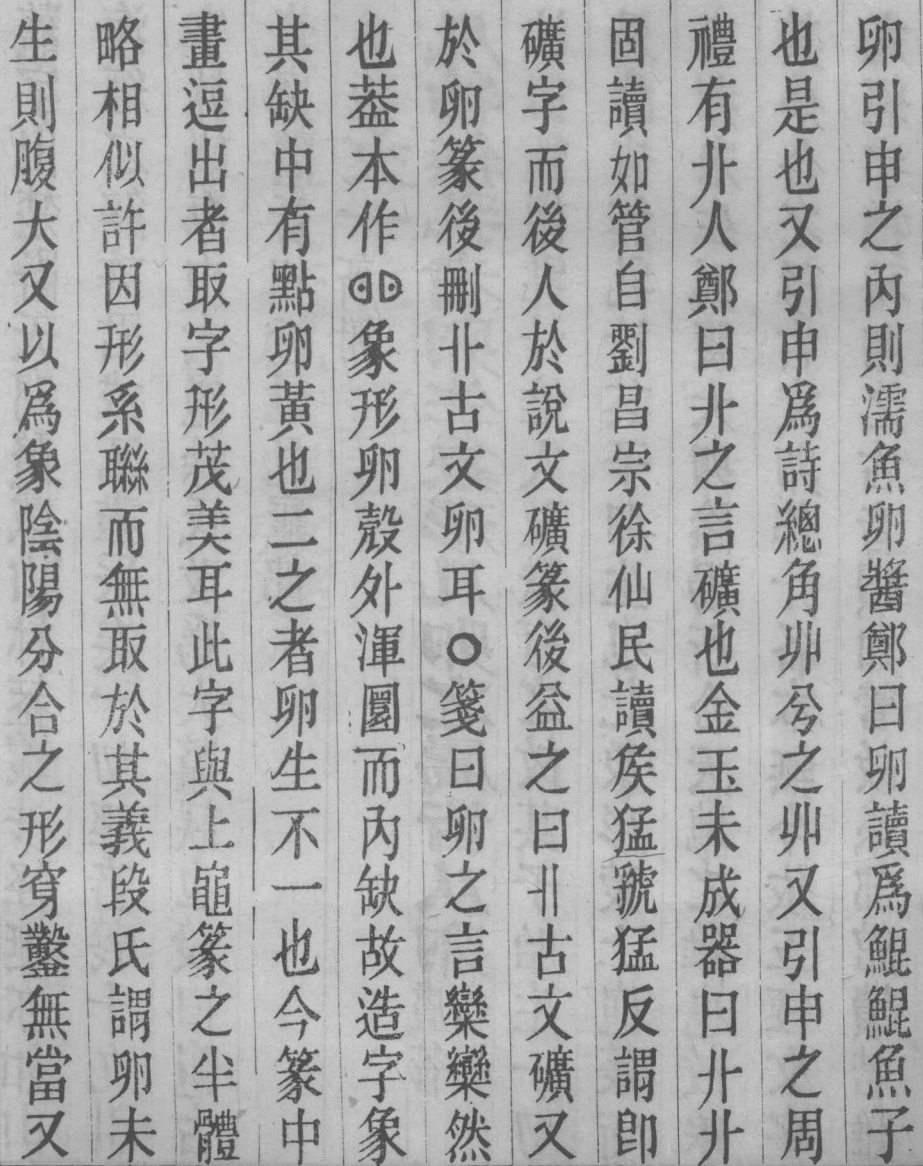 卵引申之內則濡魚卵醬鄭曰卵讀爲鯤鯤魚子
也是也又引申爲詩總角丱兮之丱又引申之周
禮有卝人鄭曰卝之言礦也金玉未成器曰卝卝
固讀如管自劉昌宗徐仙民讀矦猛虢猛反謂卽
礦字而後人於說文礦篆後益之曰卝古文礦又
於卵篆後刪卝古文卵耳○箋曰卵之言欒欒然
也葢本作象形卵殼外渾圜而內缺故造字象
其缺中有點卵黃也二之者卵生不一也今篆中
畫逗出者取字形茂美耳此字與上黽篆之半體
略相似許因形系聯而無取於其義段氏謂卵未
生則腹大又以爲象陰陽分合之形穿鑿無當又